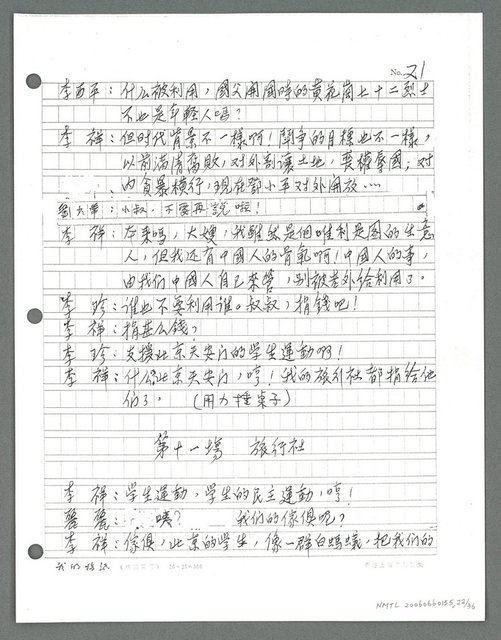 No. 21
李西平：什么被利用，國父開國時的黄花崗七十二烈士
不也是年輕人嗎？
李　祥：但时代背景不一樣啊！鬥争的目標也不一樣，
以前滿清腐敗，对外割讓土地，喪權辱國；对
内貪暴橫行，現在鄧小平对外開放…
劉大華：小叔，不要再說啦！
李　祥：本來嗎，大嫂，我雖然是個唯利是图的生意
人，但我还有中國人的骨氣啊！中國人的事，
由我们中國人自己來管，别被老外给利用了。
李　珍：誰也不要利用谁。叔叔，捐钱吧！
李　祥：捐甚么钱？
李　珍：支援北京天安门的學生運動啊！
李　祥：什么北京天安门，哼！我的旅行社都捐给他
们了。（用力捶桌子）
第十一場　旅行社
李　祥：學生運動，學生的民主運動，哼！
麗麗：咦？　我们的傢俱呢？
李　祥：傢俱，北京的學生，像一群白螞蟻，把我们的
NMTL 20060660155, 22/36